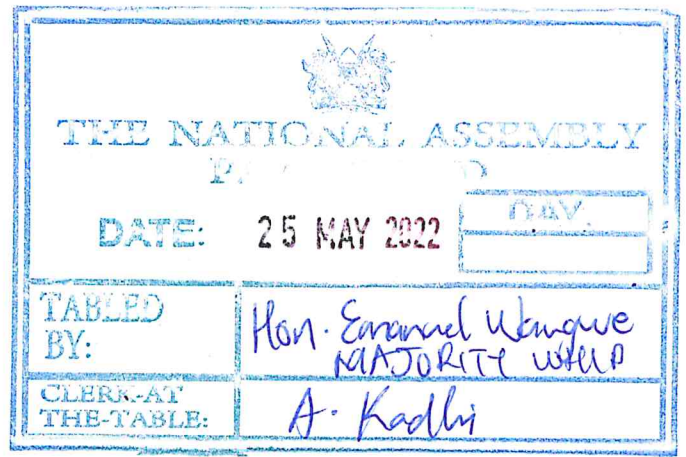 THE NATIONAL ASSEMBLY
DATE: 25 MAY 2022 DAY.
TABLED BY: Hon. Emanuel Wangwe
MAJORITY WHIP
CLERK-AT THE-TABLE: A. Kadhi